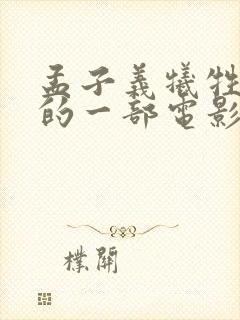 孟子義犧牲
的一部電影
樸開